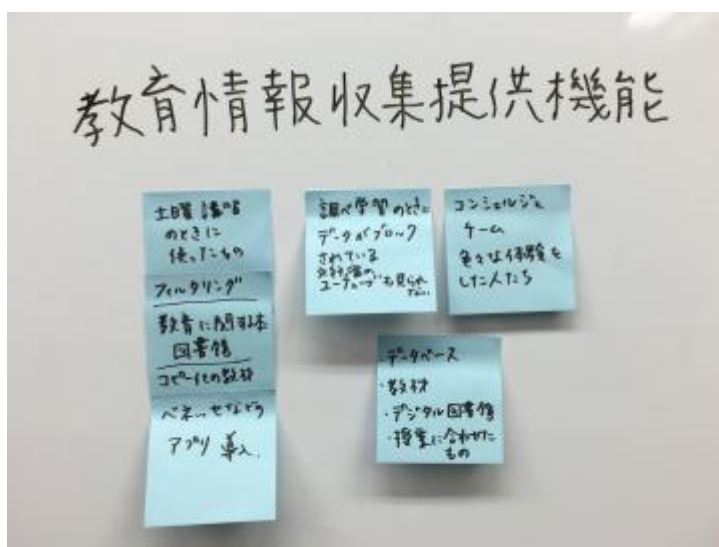 教育情報収集提供機能
土曜講習
のときに
使ったもの
フィルタリング
教育に関する本
図書館
コピー化の教材
ベネッセなどの
アプリ導入
調べ学習のときに
データがブロック
されている
ユーチューブも見られ
ない
コンシェルジュ
チーム
色々な体験を
した人たち
データベース
・教材
・デジタル図書館
・授業に合わせた
もの